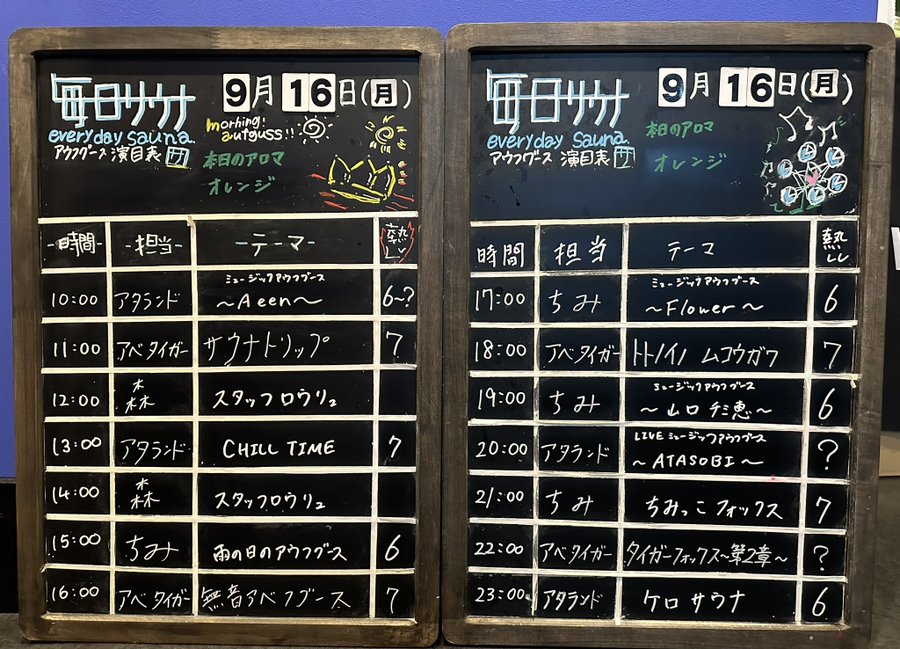 毎日サウナ
9月16日(月)
everyday sauna.
morning!
autguss!!
アウフグース 演目表 サ
本日のアロマ
オレンジ
-時間- -担当- -テーマ- 熱レベ
ミュージックアウフグース
10:00 アタランド ～Aeen～ 6~?
11:00 アベタイガー サウナトリップ 7
12:00 森 スタッフロウリュ
13:00 アタランド CHILL TIME 7
14:00 森 スタッフロウリュ
15:00 ちみ 雨の日のアウフグース 6
16:00 アベタイガー 無音アベフグース 7
毎日サウナ
9月16日(月)
everyday sauna.
アウフグース 演目表 サ
本日のアロマ
オレンジ
時間 担当 テーマ 熱レベ
ミュージックアウフグース
17:00 ちみ ～Flower～ 6
18:00 アベタイガー トトノイノ ムコウガワ 7
ミュージックアウフグース
19:00 ちみ ～山口チミ恵～ 6
LIVE ミュージックアウフグース
20:00 アタランド ～ATASOBI～ ?
21:00 ちみ ちみっこフォックス 7
22:00 アベタイガー タイガーフォックス～第2章～ ?
23:00 アタランド ケロサウナ 6